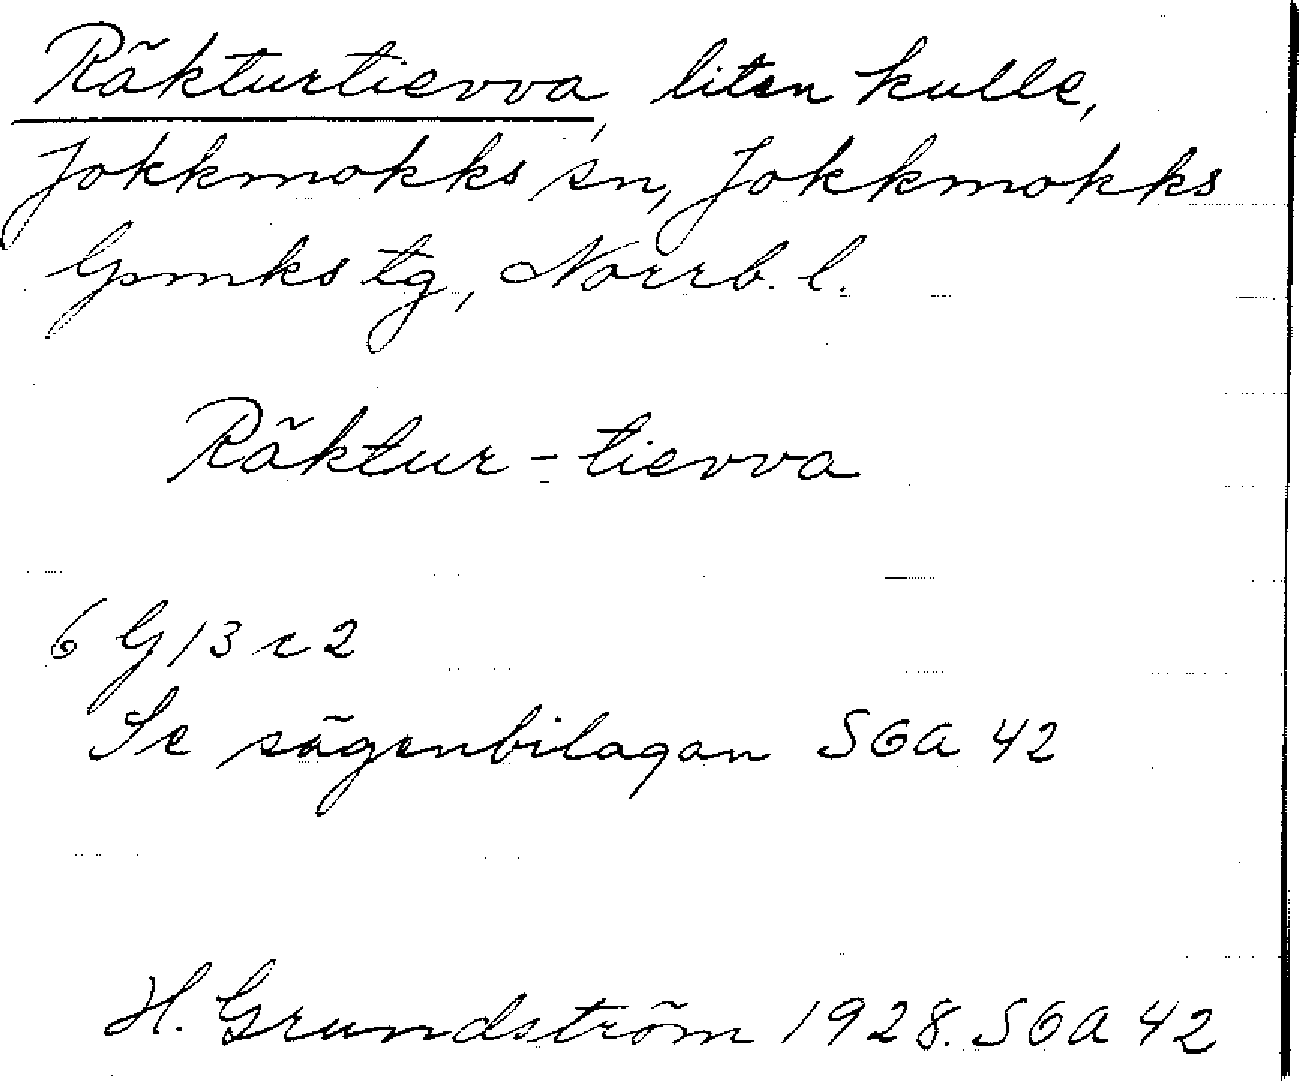 Räkturtievva, liten kulle,
Jokkmokks sn, Jokkmokks
lpmks tg, Norrb. l.
Räktur-tievva
6 G 13 c 2
Se sägenbilagan SGA 42
H. Grundström 1928. SGA 42